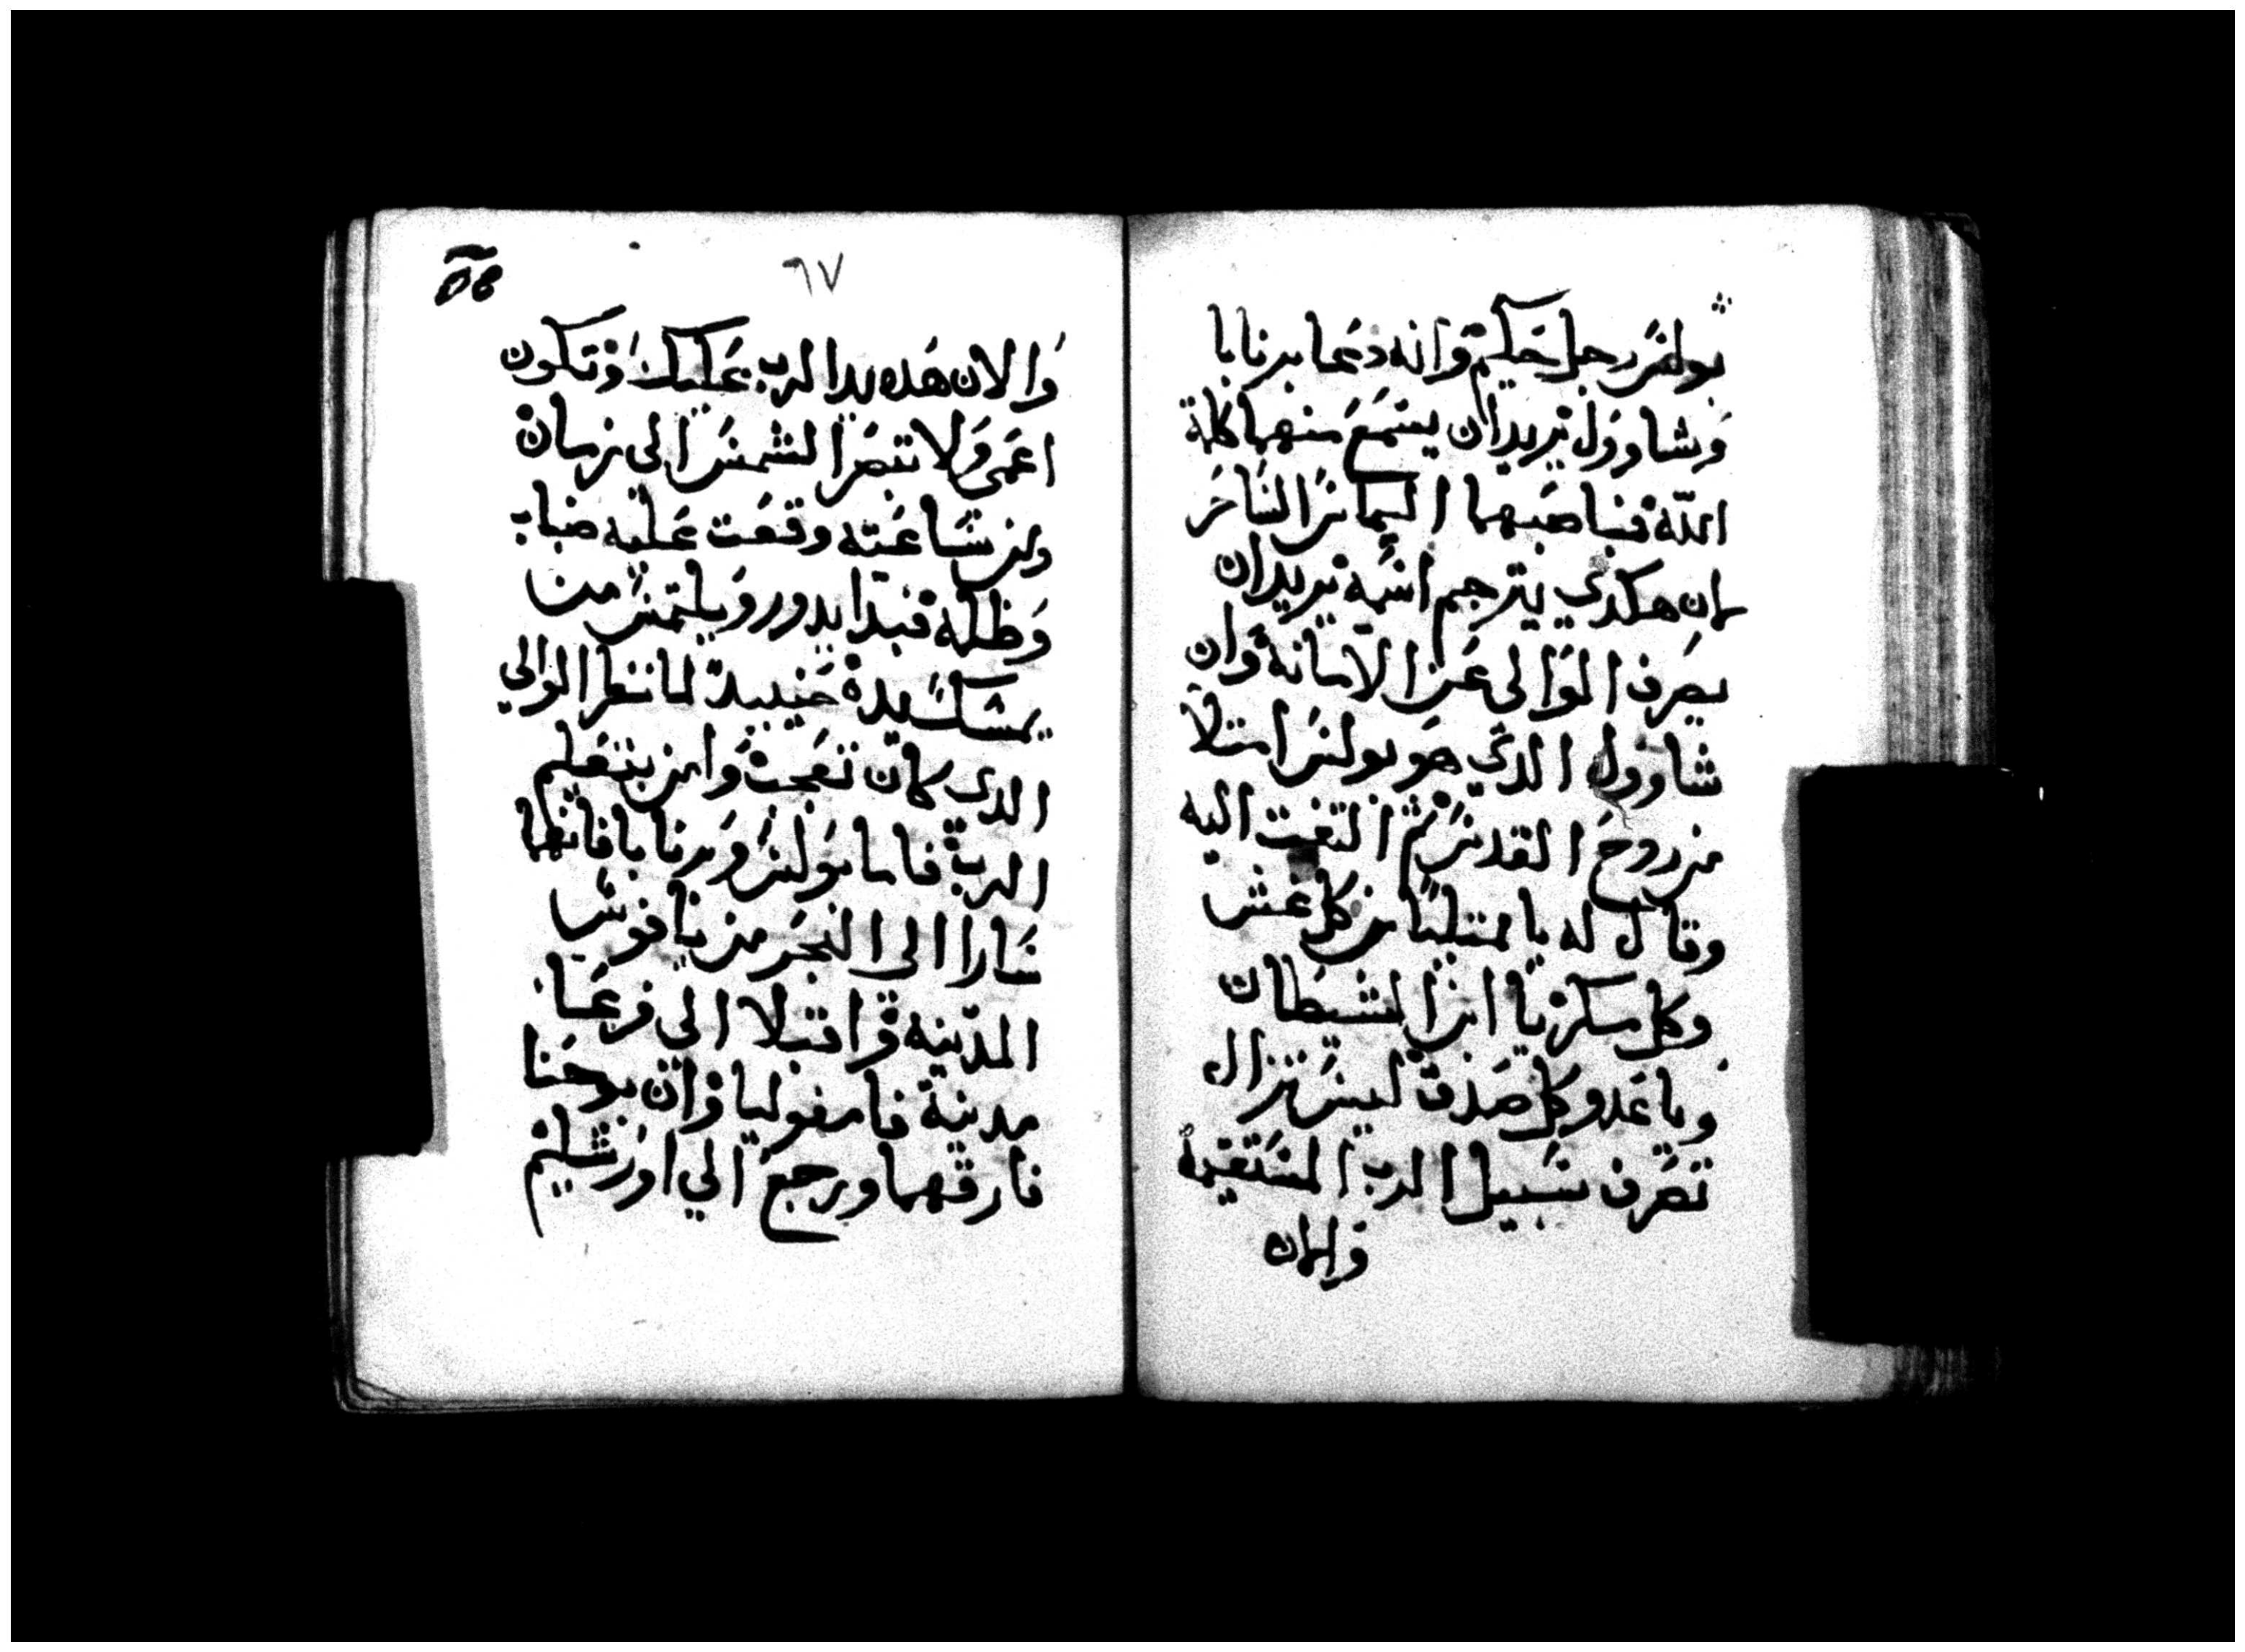 بولس رجل حكيم وانه دعا برنابا
وشاوول يريد ان يسمع منهما كلمة
الله فناصبهما اليماس الساحر
لان هكدي يترجم اسمه يريد ان
يصرف الوالى عن الامانة وان
شاوول الدي هو بولس امتلا
من روح القدس ثم التفت اليه
وقال له يا ممتليا من كل غش
وكل مكر يا ابن الشيطان
ويا عدو كل صدق ليس تزال
تصرف سبيل الرب المستقيمه
والان
٦٧
والان هده يد الرب عليك وتكون
اعمى ولا تبصر الشمس الى زمان
ومن ساعته وقعت عليه ضباب
وظلمة فبدا يدور ويلتمس من
يمسك يده حينيد لما نظر الوالي
الدى كان تعجب وامن بتعليم
الرب فاما بولس وبرنابا فانهما
سارا الى البحر من يافوس
المدينه واقبلا الى فرغا
مدينة فامفوليا وان يوحنا
فارقهما ورجع الي اورشليم